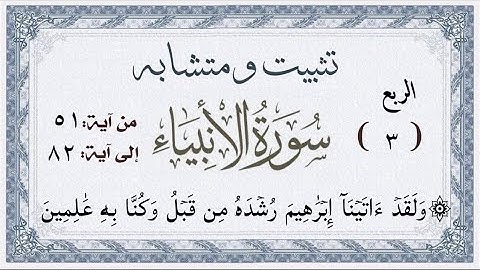 تثبيت و متشابه
الربع
( ٣ )
سورة الأنبياء
من آية: ٥١
إلى آية: ٨٢
۞ وَلَقَدۡ ءَاتَيۡنَآ إِبۡرَٰهِيمَ رُشۡدَهُۥ مِن قَبۡلُ وَكُنَّا بِهِۦ عَٰلِمِينَ